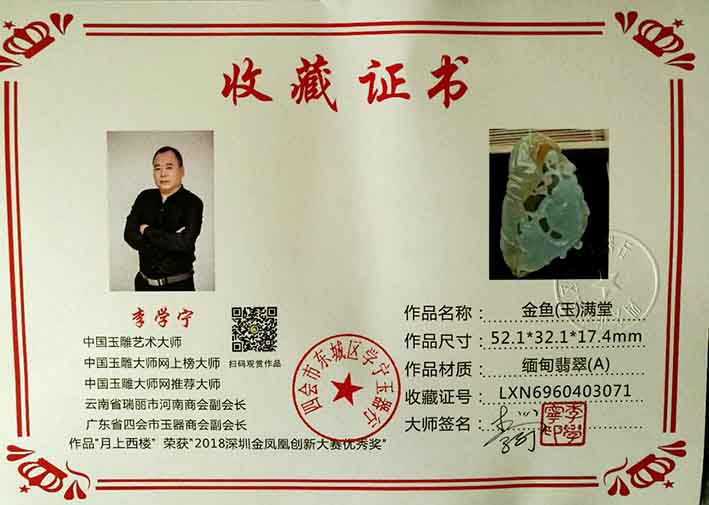 收藏证书
李学宁
中国玉雕艺术大师
中国玉雕大师网上榜大师
中国玉雕大师网推荐大师
云南省瑞丽市河南商会副会长
广东省四会市玉器商会副会长
作品"月上西楼" 荣获"2018深圳金凤凰创新大赛优秀奖"
扫码观赏作品
四会市东城区学宁玉器行
作品名称: 金鱼(玉)满堂
作品尺寸: 52.1*32.1*17.4mm
作品材质: 缅甸翡翠(A)
收藏证号: LXN6960403071
大师签名:
李學寧印